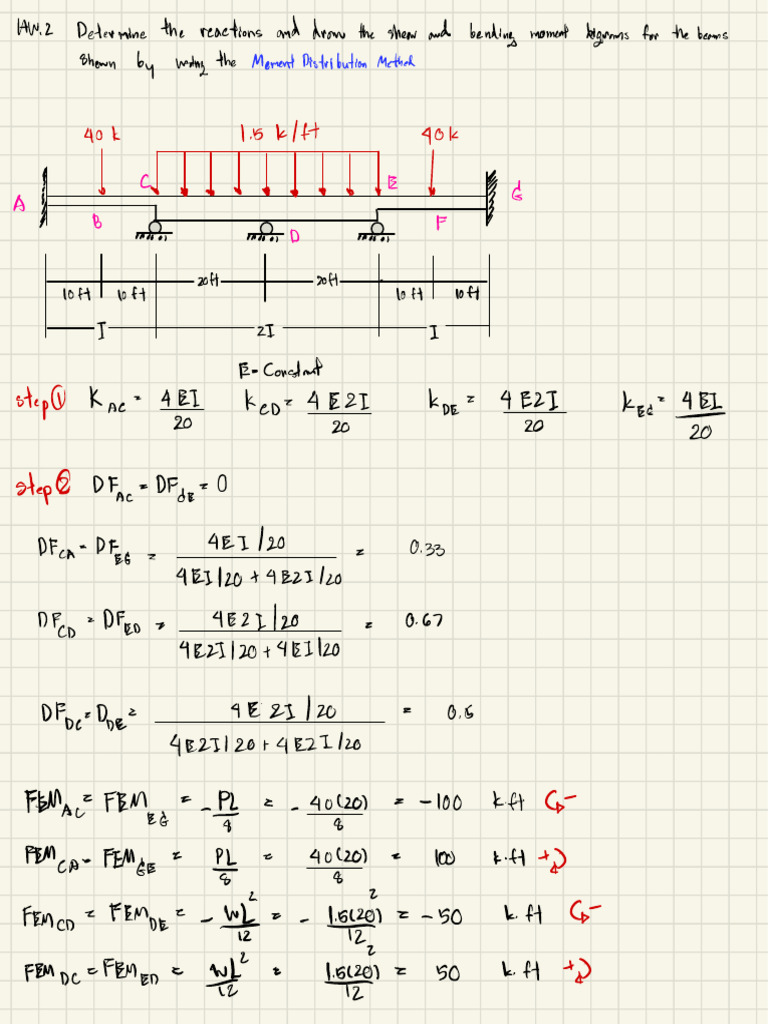 HW.2 Determine the reactions and draw the shear and bending moment diagrams for the beams
shown by using the Moment Distribution Method
40 k 1.5 k/ft 40 k
C E G
A
B D F
20ft 20ft
10 ft 10 ft 10 ft 10 ft
I 2I I
E = Constant
step ① K_AC = 4EI/20 K_CD = 4E2I/20 K_DE = 4E2I/20 K_EG = 4EI/20
step ② DF_AC = DF_GE = 0
DF_CA = DF_EG = (4EI/20)/(4EI/20 + 4E2I/20) = 0.33
DF_CD = DF_ED = (4E2I/20)/(4E2I/20 + 4EI/20) = 0.67
DF_DC = D_DE = (4E2I/20)/(4E2I/20 + 4E2I/20) = 0.5
FEM_AC = FEM_EG = -PL/8 = -40(20)/8 = -100 k.ft -
FEM_CA = FEM_GE = PL/8 = 40(20)/8 = 100 k.ft +
FEM_CD = FEM_DE = -WL²/12 = -1.5(20)²/12 = -50 k.ft -
FEM_DC = FEM_ED = WL²/12 = 1.5(20)²/12 = 50 k.ft +